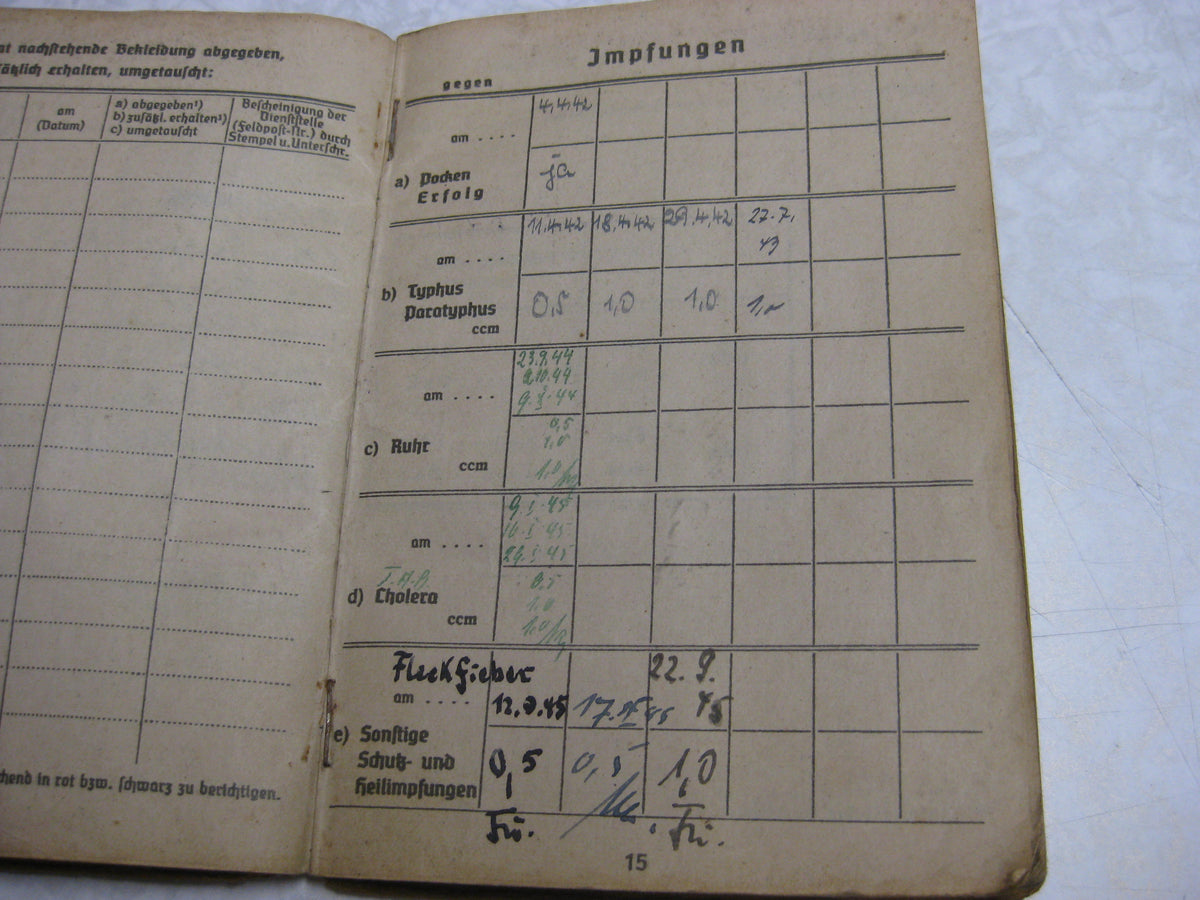 nachstehende Bekleidung abgegeben,
erhalten, umgetauscht:
am
(Datum)
a) abgegeben¹)
b) zusätzl. erhalten¹)
c) umgetauscht
Bescheinigung der
Dienststelle
(Feldpost-Nr.) durch
Stempel u. Unterschr.
in rot bzw. schwarz zu berichtigen.
Impfungen
gegen
4.4.42
am ....
a) Pocken
Erfolg
ja
11.4.42 18.4.42 29.4.42 27.7.
43
am ....
b) Typhus
Paratyphus
ccm
0,5 1,0 1,0 1,0
23.9.44
am ....
0,5
1,0
c) Ruhr
ccm
1,0
9.I.45
16.I.45
24.I.45
am ....
0,5
d) Cholera
1,0
ccm
1,0
Fleckfieber 22.9.
am .... 12.9.45 45
e) Sonstige
Schutz- und
Heilimpfungen
0,5 0,5 1,0
Fü. Fü.
15